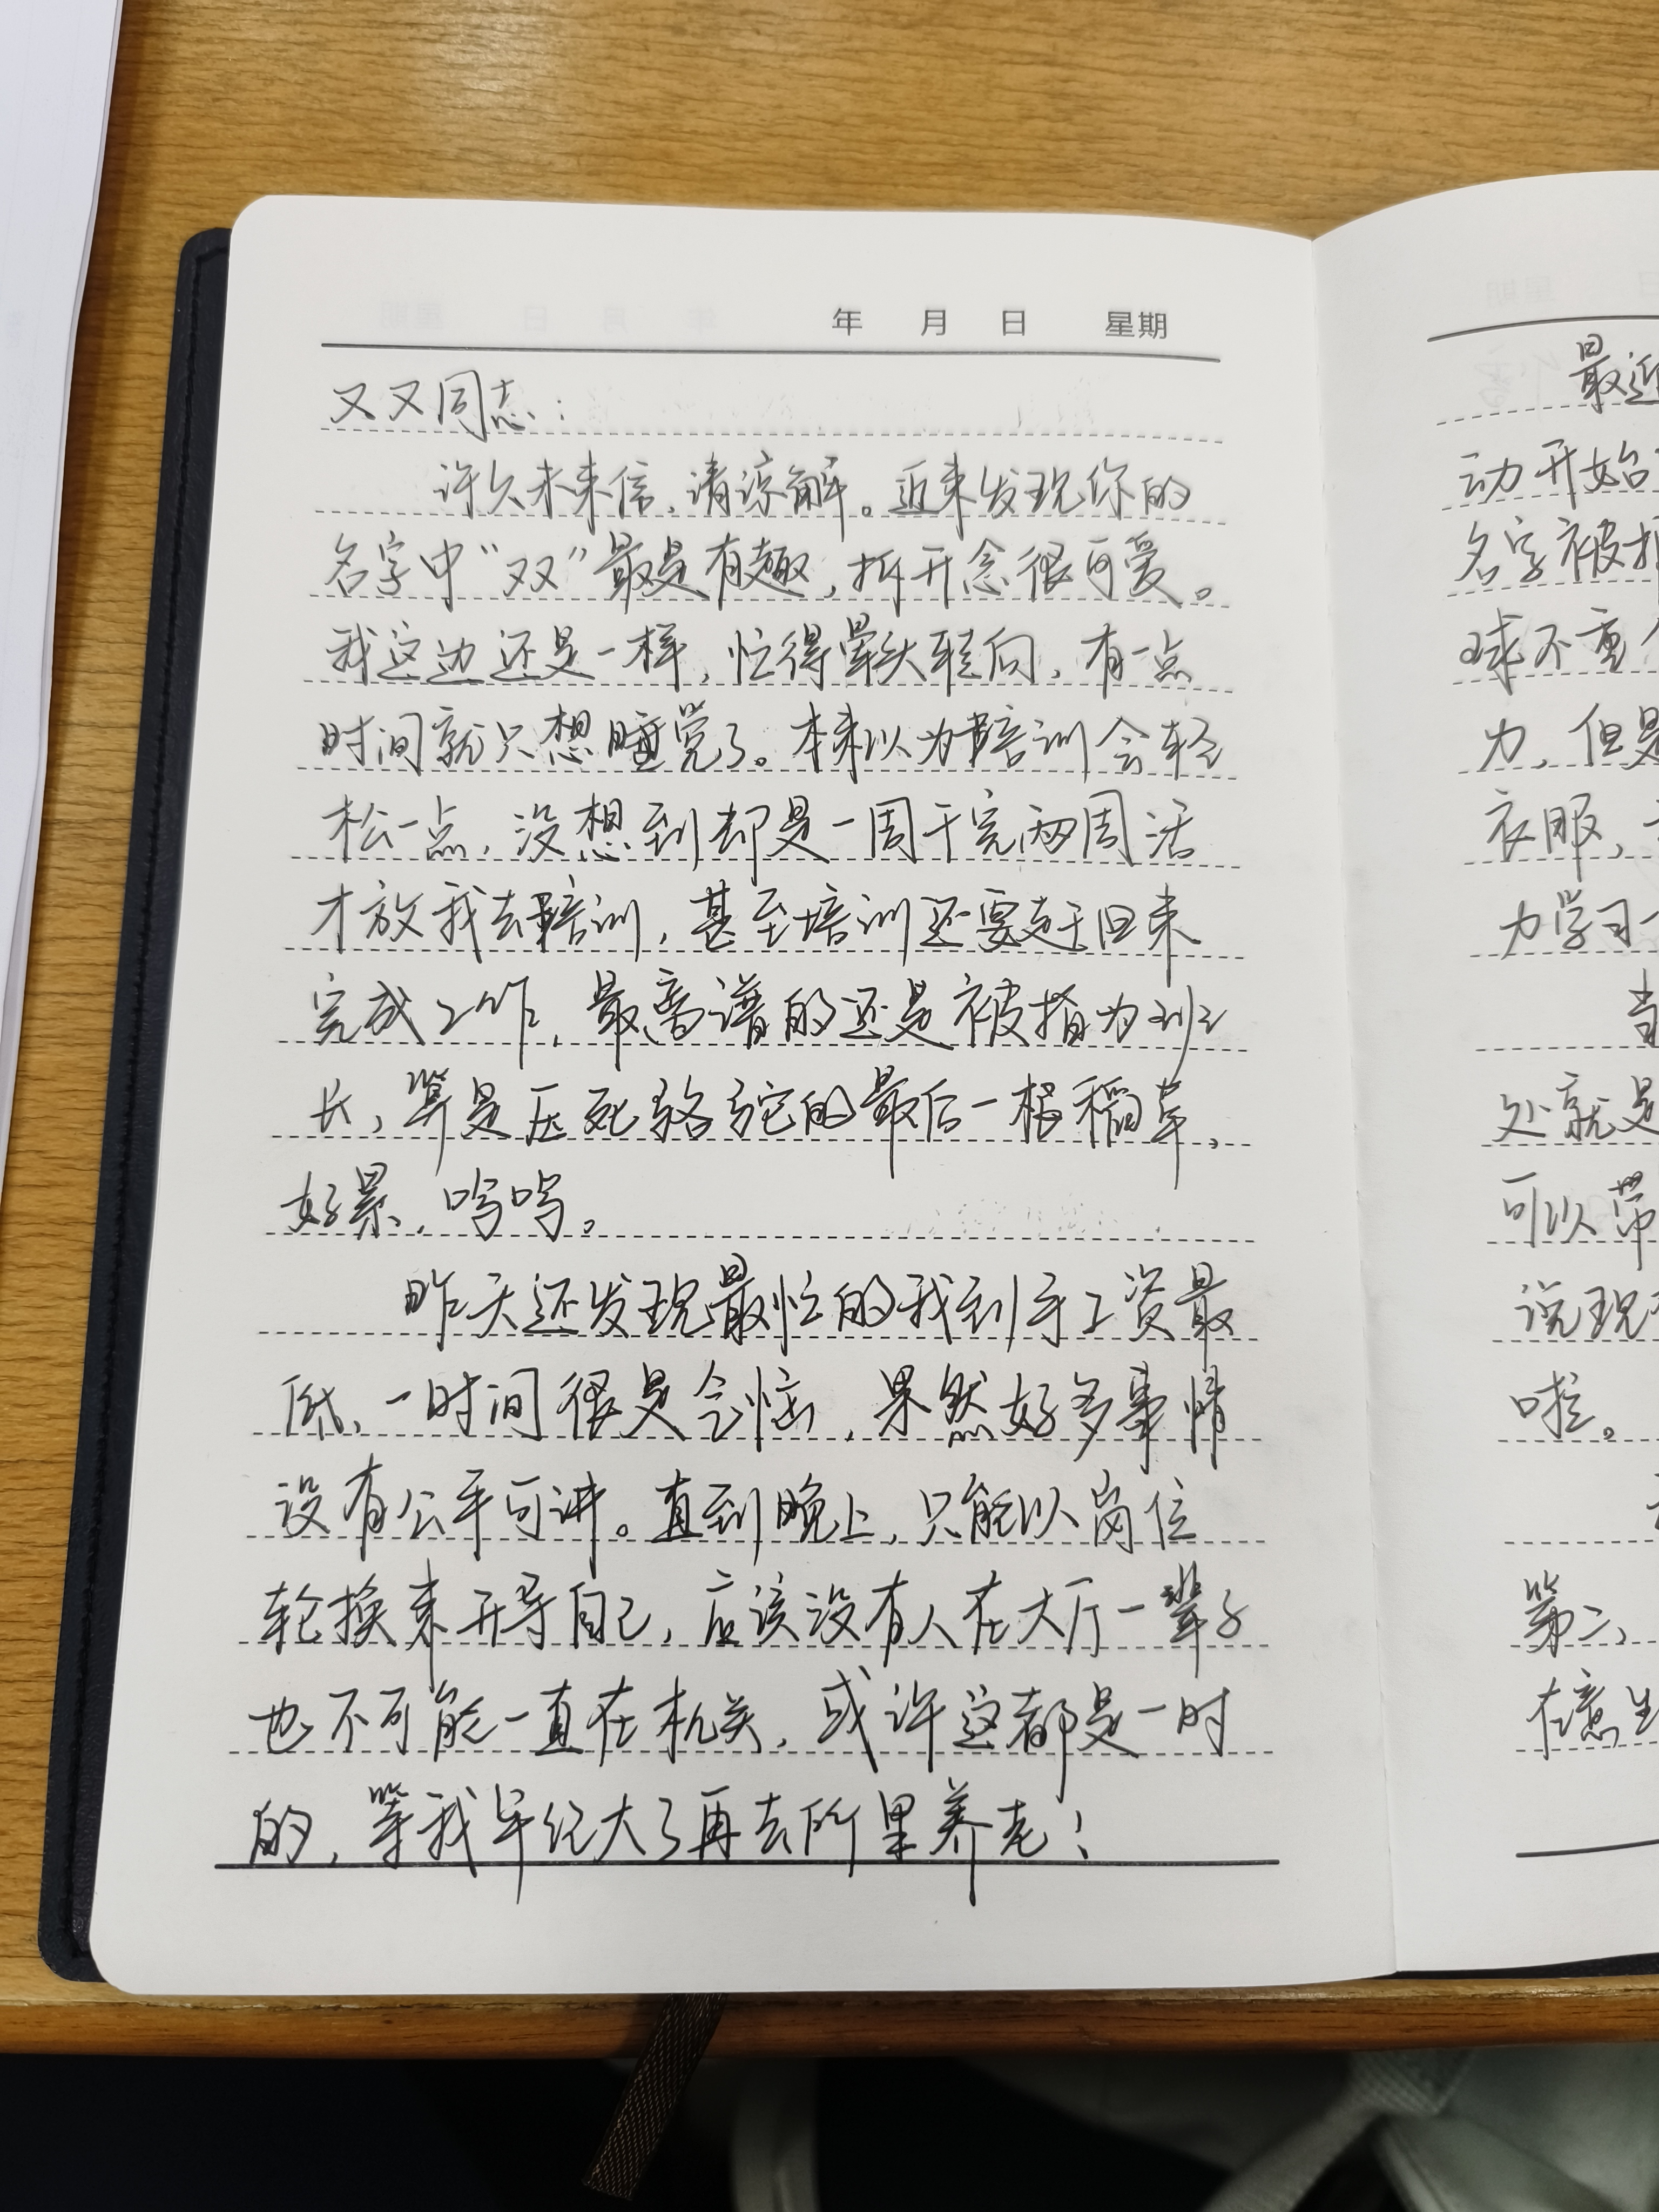 年 月 日 星期
又又同志：
许久未来信，请谅解。近来发现你的
名字中“双”最是有趣，拆开念很可爱。
我这边还是一样，忙得晕头转向，有一点
时间就只想睡觉了。本来以为培训会轻
松一点，没想到却是一周干完两周活
才放我去培训，甚至培训还要赶回来
完成工作，最离谱的还是被指为班
长，算是压死骆驼的最后一根稻草，
好累，呜呜。
昨天还发现最忙的我到手工资最
低，一时间很是气恼，果然好多事情
没有公平可讲。直到晚上，只能以岗位
轮换来开导自己，应该没有人在大厅一辈子
也不可能一直在机关，或许这都是一时
的，等我年纪大了再去所里养老！
最近
动开始
名字被
球不重
力，但是
衣服，
力学习一
当
处就是
可以带
说现
啦。
第二、
在意生